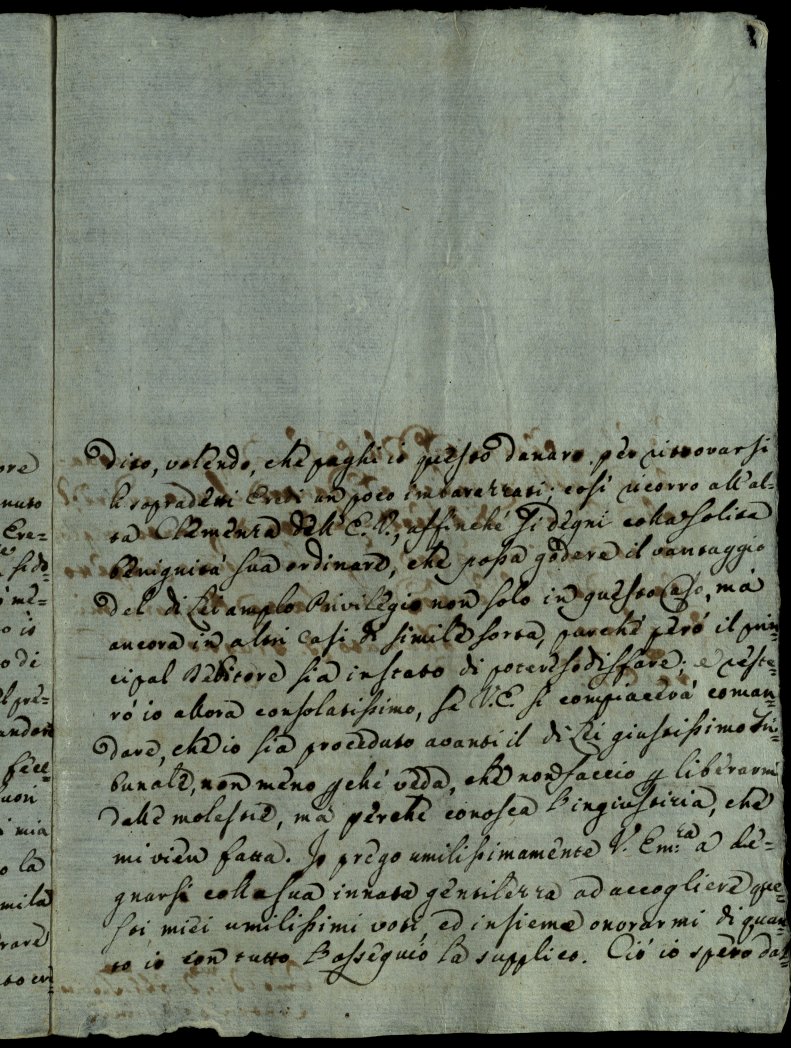 ore
nuto
Ere=
si do=
mè=
o io
o di
l prè=
andore
fèce
uori
i mia
o la
mila
rare
dito, volendo, che paghi io questo danaro per ritrovarsi
li sopradetti Eredi un poco imbarazzati; così ricorro all'al=
ta Clemenza dell'E. V., affinché si degni colla solita
benignità sua ordinare, che possa godere il vantaggio
del di Lei amplo Privilegio non solo in questo Caso, mà
ancora in altri Casi di simile sorta, purché però il prin=
cipal Debitore sia in stato di potere sodisfare; e reste=
rò io allora consolatissimo, se V.E. si compiacerà coman=
dare, che io sia proceduto avanti il di Lei giustissimo Tri=
bunale, non meno pché veda, che non faccio p liberarmi
dalle molestie, mà perché conosca l'ingiustizia, che
mi vien fatta. Io prego umilissimamente V. Em.za a de=
gnarsi colla sua innata gentilezza ad accogliere que=
sti miei umilissimi voti, ed insieme onorarmi di quan=
to io con tutto l'ossequio la supplico. Ciò io spero dal=